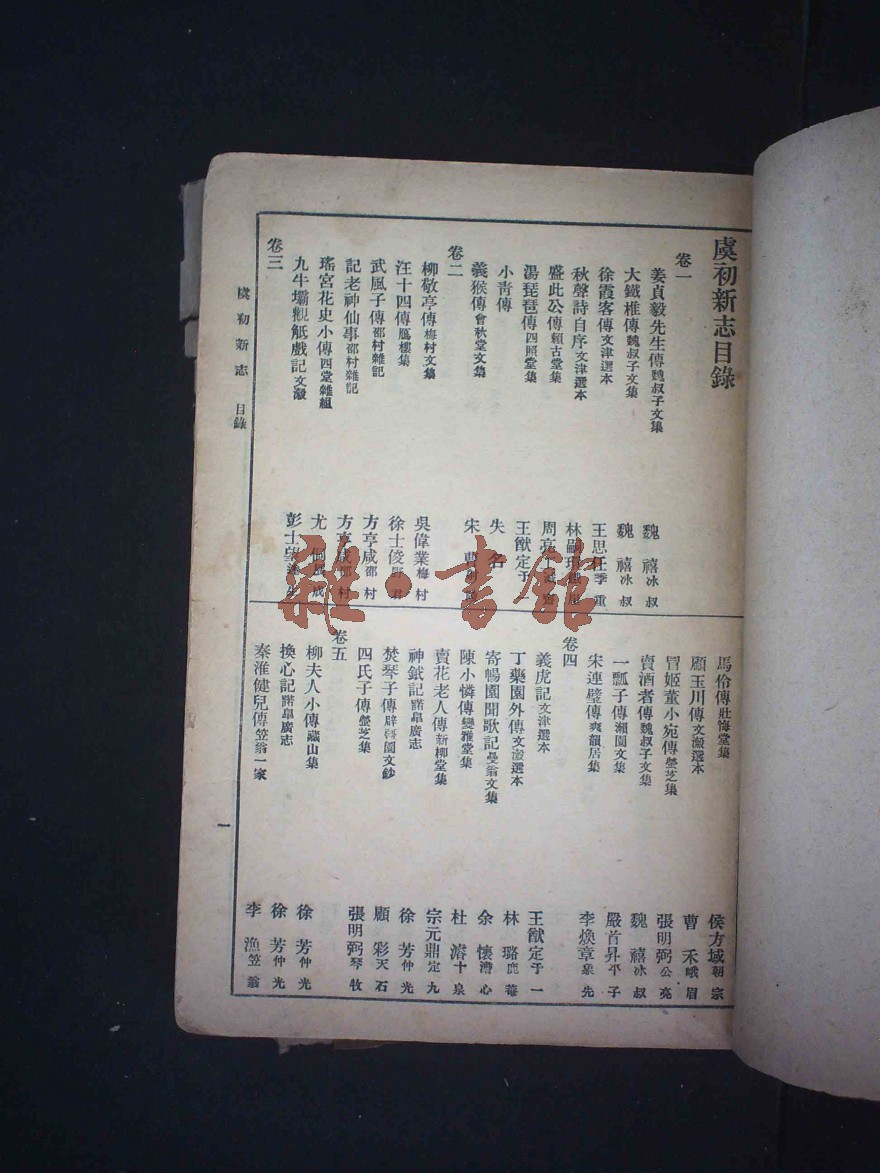 虞初新志目錄
卷一
姜貞毅先生傳魏叔子文集 魏禧冰叔
大鐵椎傳魏叔子文集 魏禧冰叔
徐霞客傳文津選本 王思任季重
秋聲詩自序文津選本 林嗣
盛此公傳賴古堂集 周亮
湯琵琶傳四照堂集 王猷定于
小青傳 失名
義猴傳會秋堂文集 宋曹
卷二
柳敬亭傳梅村文集 吳偉業梅村
汪十四傳鴈樓集 徐士俊野君
武風子傳邵村雜記 方亨咸邵村
記老神仙事邵村雜記 方亨咸邵村
瑤宮花史小傳西堂雜組 尤侗 成
九牛壩觀觝戲記文瀫 彭士望
卷三
馬伶傳壯悔堂集 侯方域朝宗
顧玉川傳文瀫選本 曹禾峨眉
冒姬董小宛傳螢芝集 張明弼公亮
賣酒者傳魏叔子文集 魏禧冰叔
一瓢子傳瀨園文集 嚴首昇平子
宋連璧傳爽韻居集 李煥章象先
卷四
義虎記文津選本 王猷定于一
丁藥園外傳文瀫選本 林璐鹿菴
寄暢園聞歌記曼翁文集 余懷澹心
陳小憐傳變雅堂集 杜濬十泉
賣花老人傳新柳堂集 宗元鼎定九
神鉞記諾皐廣志 徐芳仲光
焚琴子傳辟疆園文鈔 顧彩天石
四氏子傳螢芝集 張明弼琴牧
卷五
柳夫人小傳藏山集 徐芳仲光
換心記諾皐廣志 徐芳仲光
秦淮健兒傳笠翁一家 李漁笠翁
虞初新志 目錄
一
雜·書館